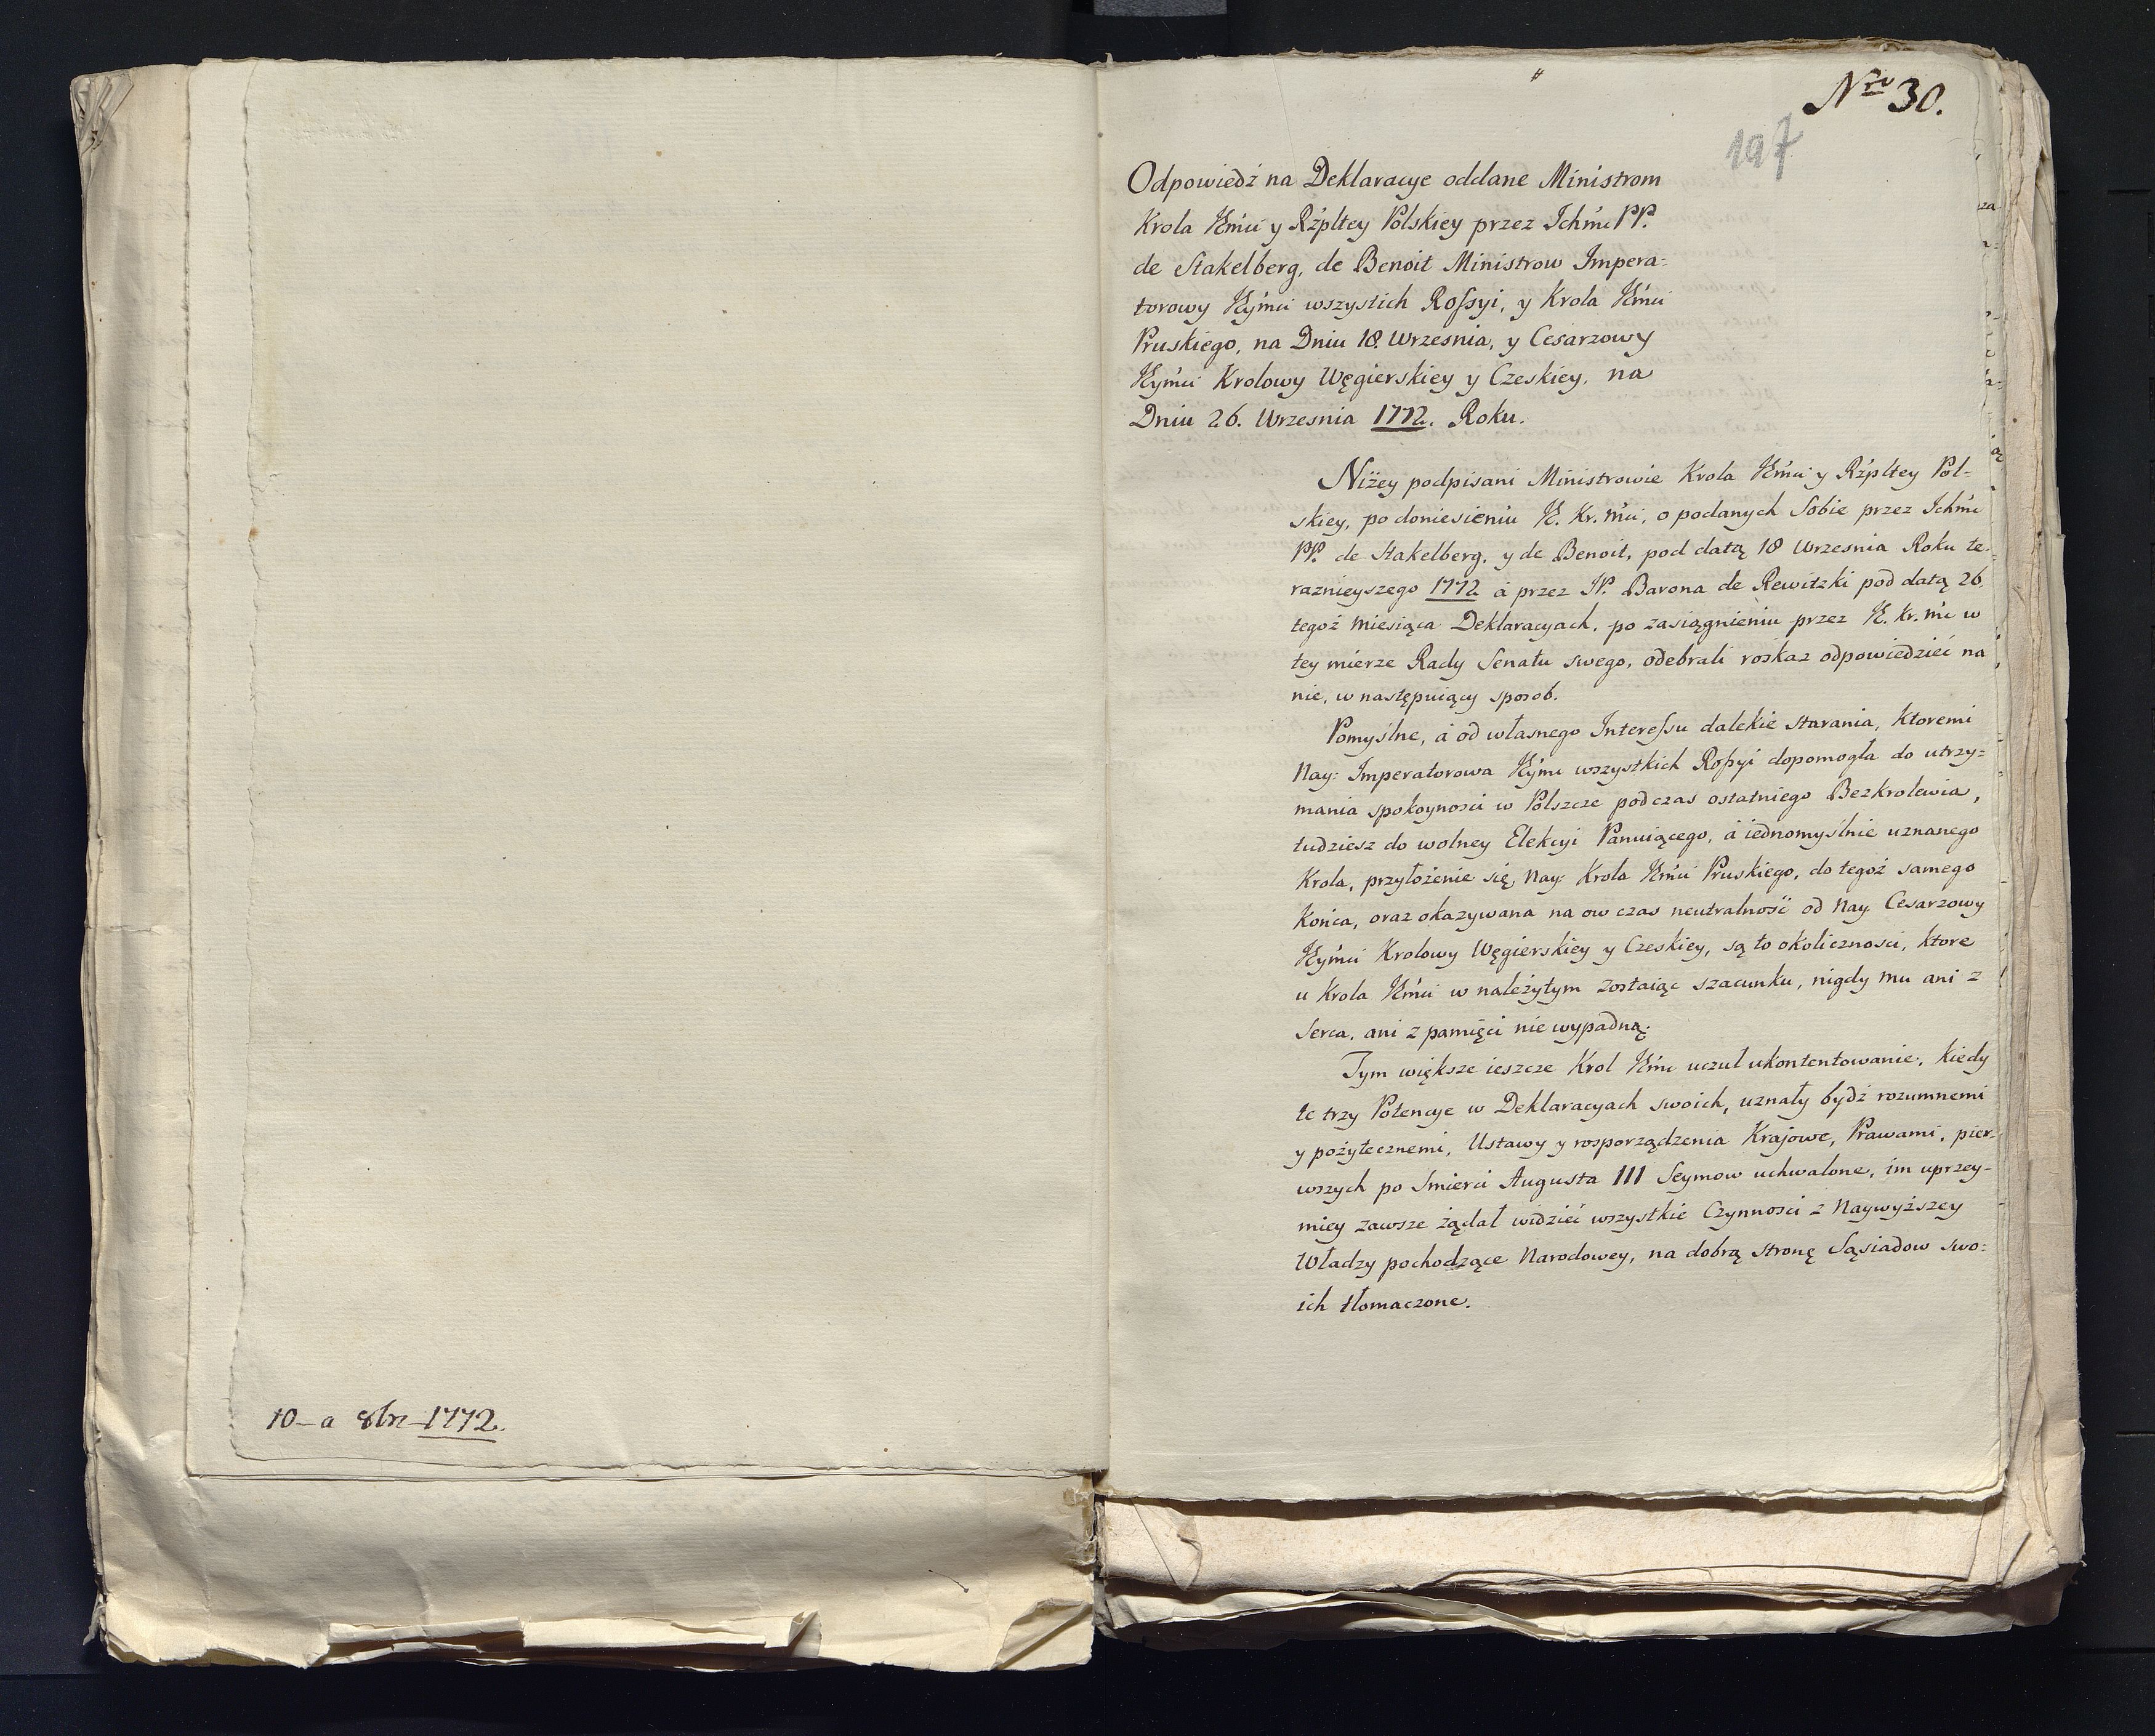 10–a 8br–1772.
Nro 30.
197
Odpowiedź na Deklaracye oddane Ministrom
Krola JEmci y Rżpltey Polskiey przez Ichmć PP.
de Stakelberg, de Benoit Ministrow Impera:
torowy Jeymci wszystich Roſsyi, y Krola JEmci
Pruskiego, na Dniu 18. Wrzesnia, y Cesarzowy
Jeymci Krolowy Węgierskiey y Czeskiey, na
Dniu 26. Wrzesnia 1772. Roku.
Niżey podpisani Ministrowie Krola JEmci y Rżpltey Pol-
skiey, po doniesieniu JE. Kr. mci, o podanych Sobie przez Ichmć
PP. de Stakelberg, y de Benoit, pod datą 18 Wrzesnia Roku te-
raznieyszego 1772 á przez JP. Barona de Rewitzki pod datą 26
tegoż Miesiąca Deklaracyach, po zasiągnieniu przez JE. Kr. mć w
tey mierze Rady Senatu swego, odebrali roskaz odpowiedzieć na
nie, w następuiący sposob.
Pomyślne, á od własnego Intereſsu dalekie starania, ktoremi
Nay: Imperatorowa Jeymć wszystkich Roſsyi dopomogła do utrzy=
mania spokoynosci w Polszcze podczas ostatniego Bezkrolewia,
tudziesz do wolney Elekcyi Panuiącego, á iednomyślnie uznanego
Krola, przyłożenie się Nay: Krola JEmci Pruskiego, do tegoż samego
Końca, oraz okazywana na ow czas neutralność od Nay. Cesarzowy
Jeymci Krolowy Węgierskiey y Czeskiey, są to okolicznosci, ktore
u Krola JEmci w należytym zostaiąc szacunku, nigdy mu ani z
Serca, ani z pamięci nie wypadną.
Tym większe ieszcze Krol JEmć uczuł ukontentowanie, kiedy
te trzy Potencye w Deklaracyach swoich, uznały bydź rozumnemi
y pożytecznemi, Ustawy y rosporządzenia Krajowe, Prawami, pier-
wszych po Smierci Augusta III Seymow uchwalone, im uprzey-
miey zawsze żądał widzieć wszystkie Czynnosci z Naywyższey
Władzy pochodzące Narodowey, na dobrą stronę Sąsiadow swo:
ich tłomaczone.